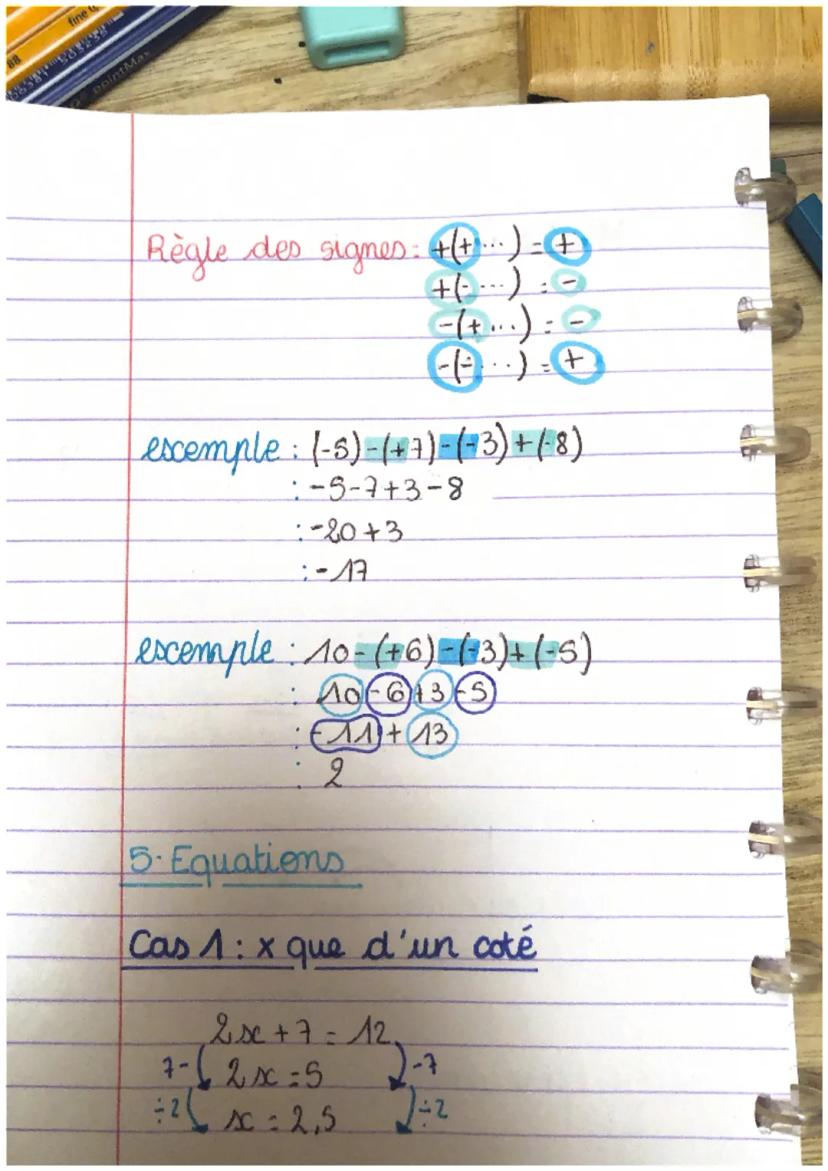 fine
BB
pointMax
Règle des signes: +(+ ...) = +
+(- ...) = -
-(+ ...) = -
-(- ...) = +
exemple : (-5)-(+7)-(-3)+(-8)
: -5-7+3-8
: -20+3
: -17
exemple : 10-(+6)-(-3)+(-5)
: 10-6+3-5
: -11+13
: 2
5. Equations
Cas 1 : x que d'un coté
2x + 7 = 12
7- 2x = 5 -7
÷2 x = 2,5 ÷2